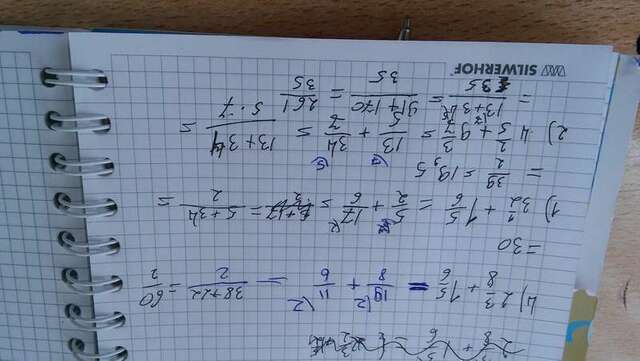 4) 2 3/8 + 1 5/6 = 19/8 \2 + 11/6 \2 = 38+22/2 = 60/2
= 30
1) 3 1/2 + 1 5/6 = 5/2 + 17/6 \2 = = 5+34/2 =
= 39/2 = 19,5
2) 4 2/5 + 9 3/7 = 13/5 \7 + 34/7 \5 = 13+34/5·7 =
= 13\7+34\5/35 = 91+170/35 = 261/35
SILWERHOF